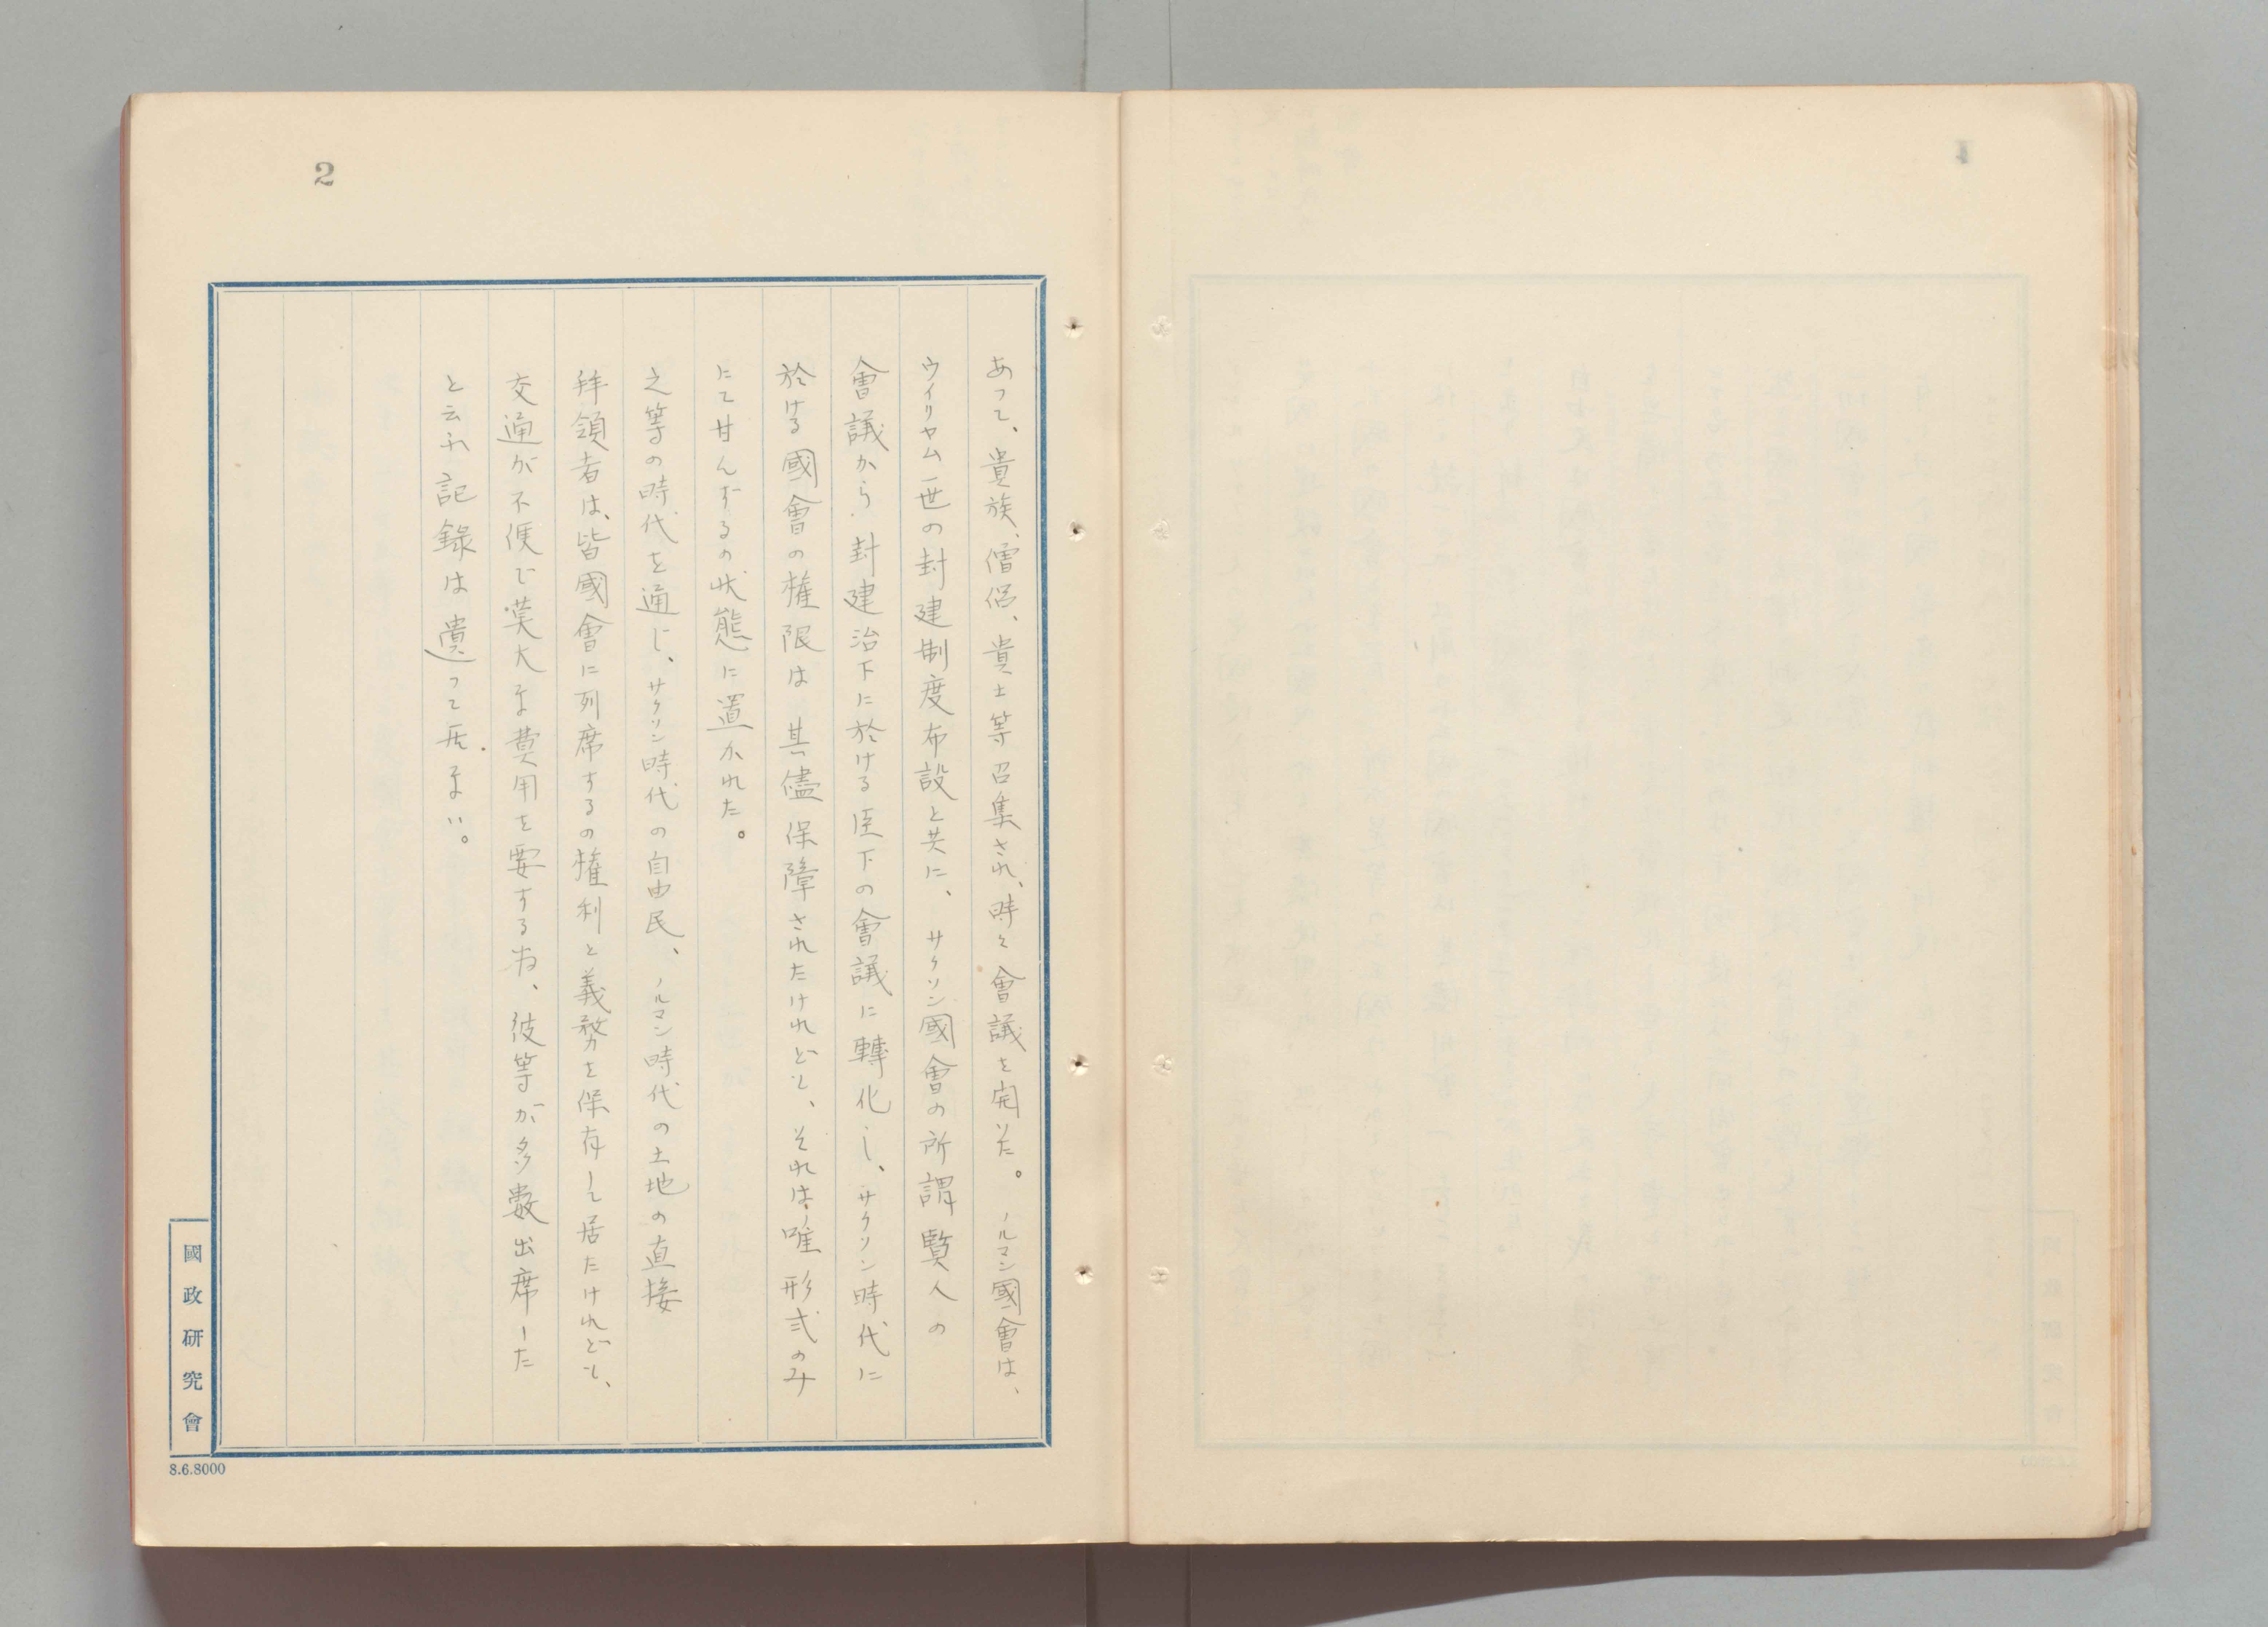 2
あつて、貴族、僧侶、貴士等召集され、時々會議を開いた。ノルマン國會は、
ウイリヤム一世の封建制度布設と共に、サクソン國會の所謂賢人の
會議から封建治下に於ける臣下の會議に轉化し、サクソン時代に
於ける國會の權限は其儘保障されたけれども、それは唯形式のみ
にて甘んずるの狀態に置かれた。
之等の時代を通じ、サクソン時代の自由民、ノルマン時代の土地の直接
拝領者は、皆國會に列席するの權利と義務を保存して居たけれども、
交通が不便で莫大な費用を要する為、彼等が多數出席した
と云ふ記錄は遺つて居ない。
國政研究會
8.6.8000